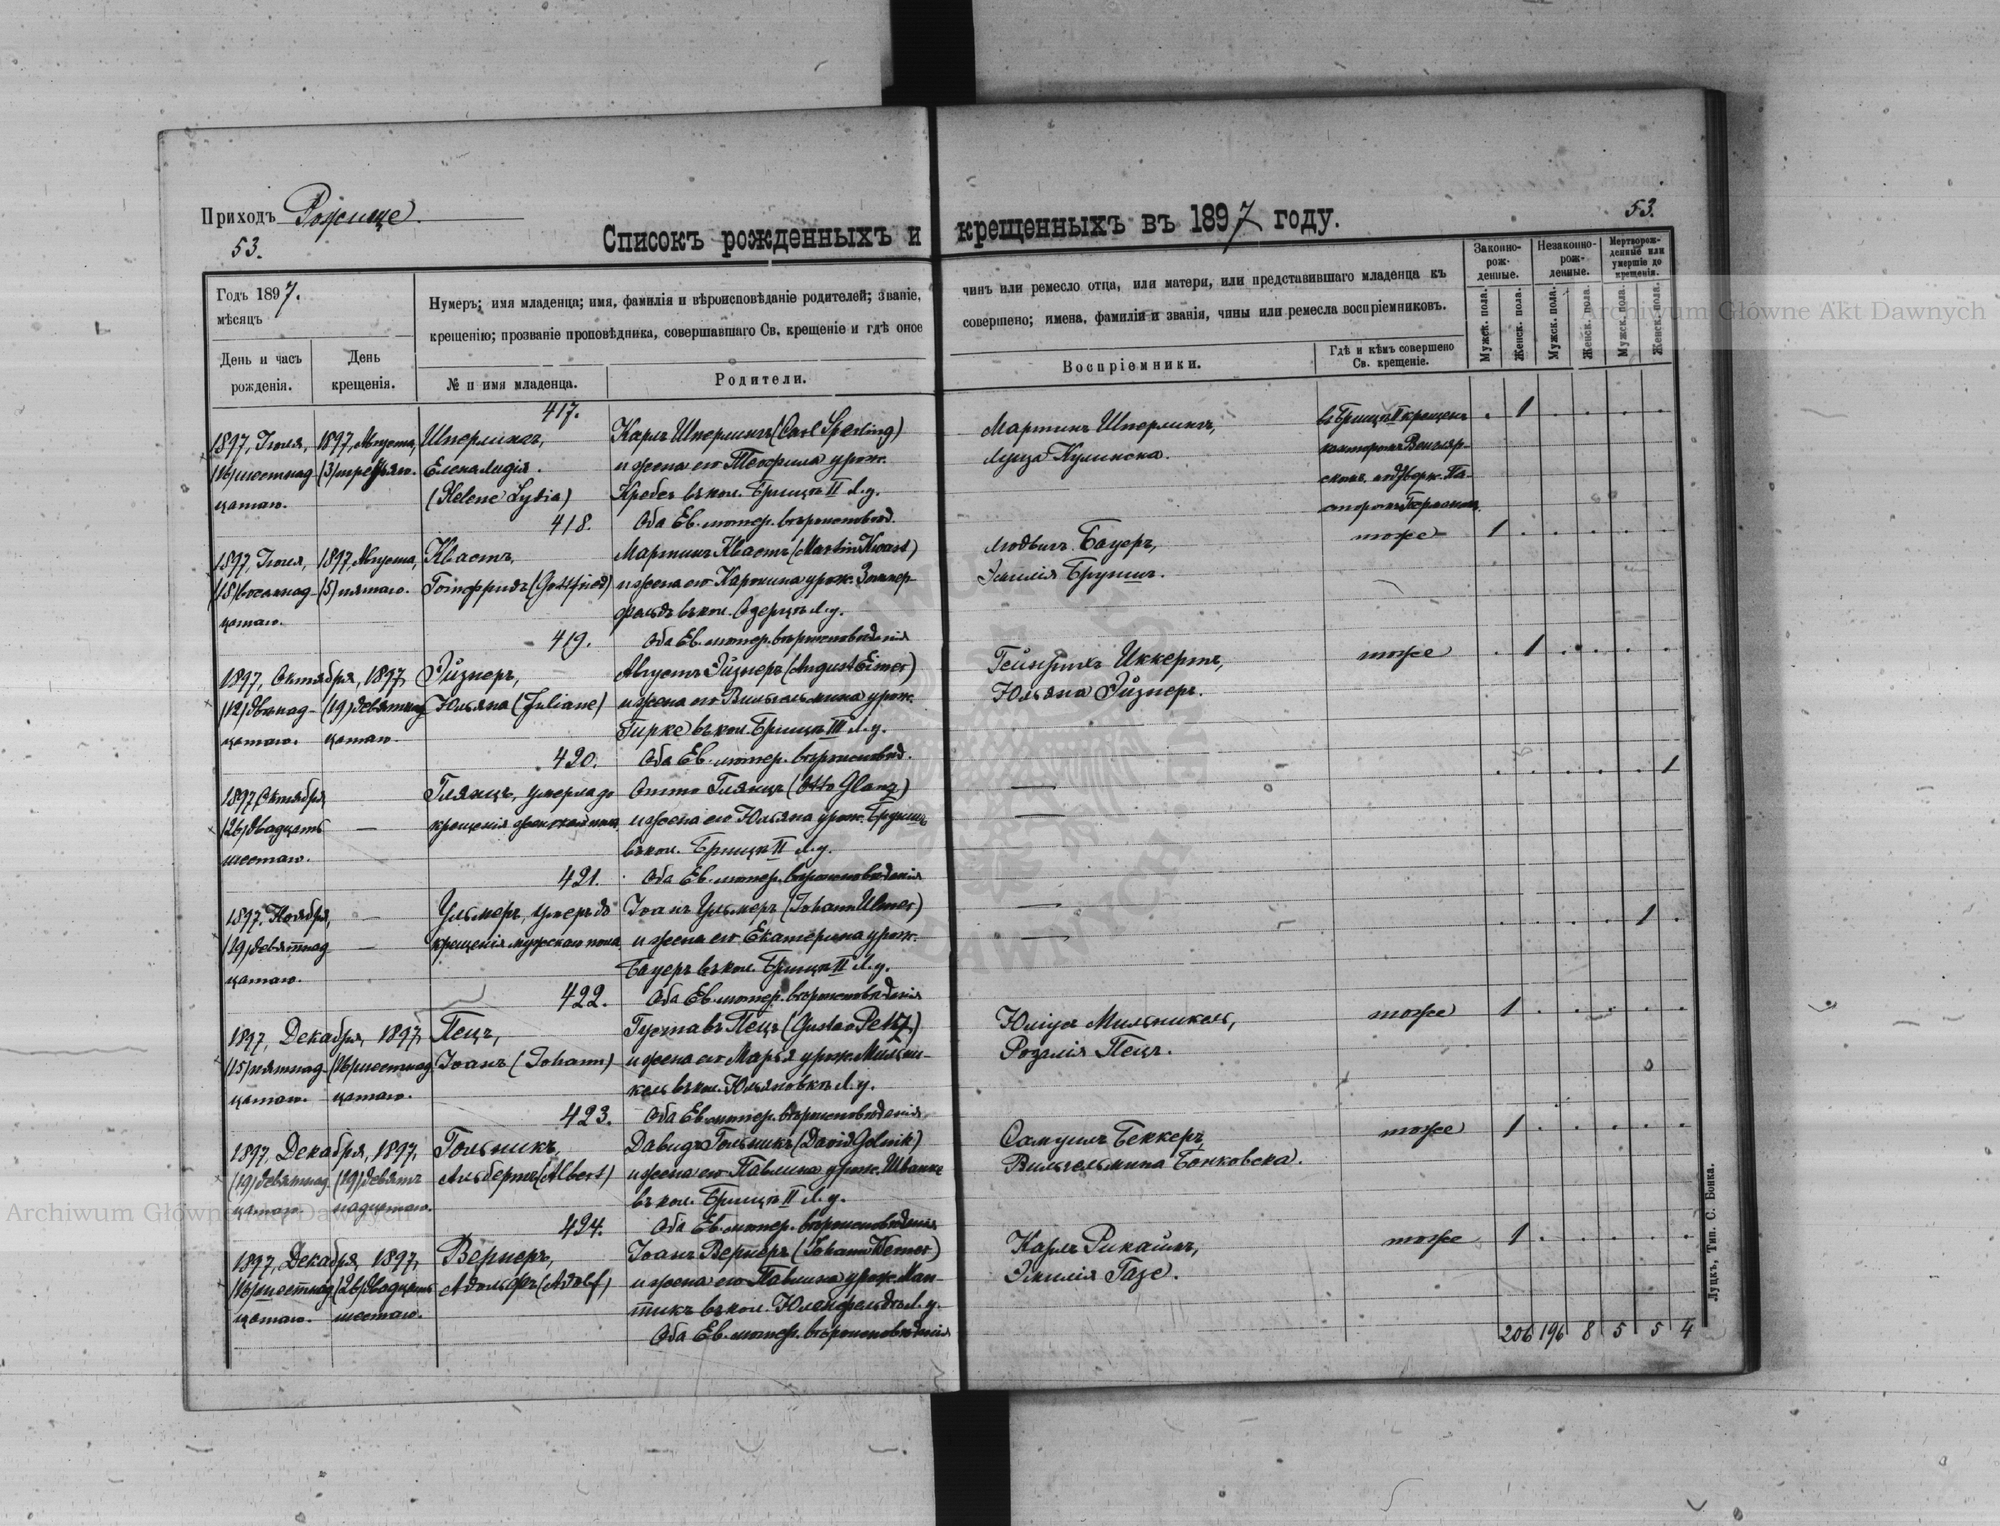 Приходъ Рожище.
53.
Списокъ рожденныхъ и крещенныхъ въ 1897 году.
53.
Годъ 1897.
мѣсяцъ
День и часъ рожденія.
День крещенія.
Нумеръ; имя младенца; имя, фамилія и вѣроисповѣданіе родителей; званіе, чинъ или ремесло отца, или матери, или представившаго младенца къ
крещенію; прозваніе проповѣдника, совершавшаго Св. крещеніе и гдѣ оное совершено; имена, фамиліи и званія, чины или ремесла воспріемниковъ.
№ и имя младенца.
Родители.
Воспріемники.
Гдѣ и кѣмъ совершено Св. крещеніе.
Законно-рож-денные.
Незаконно-рож-денные.
Мертворож-денные или умершіе до крещенія.
Мужск. пола.
Женск. пола.
Мужск. пола.
Женск. пола.
Мужск. пола.
Женск. пола.
417.
1897, Іюля, 1897, Августа, Шперлингъ, Карлъ Шперлингъ (Carl Sperling) Мартинъ Шперлингъ, въ Брищѣ II крещенъ 1
(16) шестнад- (3) третьяго. Елена Лидія. и жена его Теофила урож. Луиза Кулинска. канторомъ
цатаго. (Helene Lydia) Кребсъ въ кол. Брищѣ II Л. у.
418. Оба Ев. лютер. вѣроисповѣд.
1897, Іюля, 1897, Августа, Квастъ, Мартинъ Квастъ (Martin Kwast) Людвигъ Бауеръ, тоже 1
(18) восемнад- (5) пятаго. Готфридъ (Gottfried) и жена его Каролина урож. Зоммер- Эмилія Бруншъ.
цатаго. фельдъ въ кол. Л. у.
419. Оба Ев. лютер. вѣроисповѣданія
1897, Октября, 1897, Эйзнеръ, Августъ Эйзнеръ Гейнрихъ Иккертъ, тоже 1
(12) двѣнад- (19) девятнад- Юльяна (Juliane) и жена его Вильгельмина урож. Юльяна Эйзнеръ.
цатаго. цатаго. Гирке въ кол. Брищѣ III Л. у.
420. Оба Ев. лютер. вѣроисповѣд.
1897, Октября, Глянцъ, умерла до Отто Глянцъ (Otto Glanz) — 1
(26) двадцать — крещенія женскаго пола и жена его Юльяна урож. Бруншъ —
шестаго. въ кол. Брищѣ II Л. у.
421. Оба Ев. лютер. вѣроисповѣданія
1897, Ноября, — Ульмеръ, умеръ до Іоанъ Ульмеръ (Johann Ulmer) — 1
(19) девятнад- — крещенія мужскаго пола и жена его Екатерина урож. —
цатаго. Бауеръ въ кол. Брищѣ II Л. у.
422. Оба Ев. лютер. вѣроисповѣданія
1897, Декабря, 1897, Пецъ, Густавъ Пецъ (Gustav Petz) Юліусъ Мильникель, тоже 1
(15) пятнад- (16) шестнад- Іоанъ (Johann) и жена его Марья урож. Мильни- Розалія Пецъ.
цатаго. цатаго. кель въ кол. Юльяновкѣ Л. у.
423. Оба Ев. лютер. вѣроисповѣданія
1897, Декабря, 1897, Гольникъ, Давидъ Гольникъ (David Golnik) Самуилъ Беккеръ, тоже 1
(19) девятнад- (19) девят- Альбертъ (Albert) и жена его Павлина урож. Шванке Вильгельмина Бонковска.
цатаго. надцатаго. въ кол. Брищѣ II Л. у.
424. Оба Ев. лютер. вѣроисповѣданія
1897, Декабря, 1897, Вернеръ, Іоанъ Вернеръ (Johann Werner) Карлъ Рикаймъ, тоже 1
(16) шестнад- (26) двадцать Адольфъ (Adolf) и жена его Павлина урож. Ман- Эмилія Газе.
цатаго. шестаго. тикъ въ кол. Юленфельдѣ Л. у.
Оба Ев. лютер. вѣроисповѣданія
206 196 8 5 5 4
Луцкъ, Тип. С. Бонка.
Archiwum Główne Akt Dawnych
Archiwum Główne Akt Dawnych